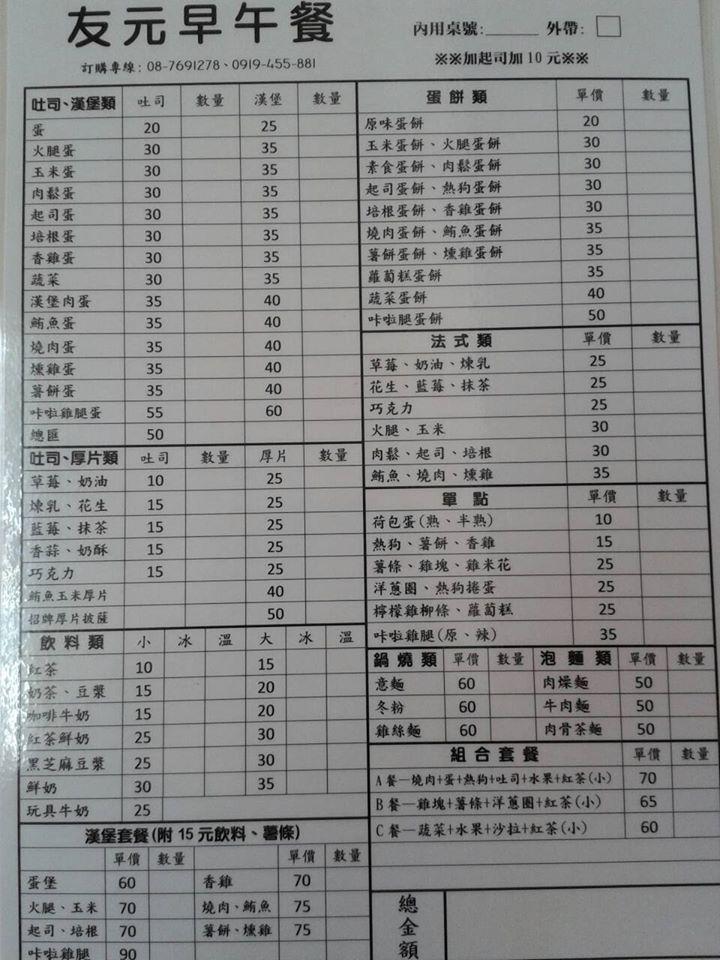 友元早午餐
內用桌號:______ 外帶: □
訂購專線: 08-7691278、0919-455-881
※※加起司加 10 元※※
吐司、漢堡類 吐司 數量 漢堡 數量
蛋 20 25
火腿蛋 30 35
玉米蛋 30 35
肉鬆蛋 30 35
起司蛋 30 35
培根蛋 30 35
香雞蛋 30 35
蔬菜 30 35
漢堡肉蛋 35 40
鮪魚蛋 35 40
燒肉蛋 35 40
燻雞蛋 35 40
薯餅蛋 35 40
咔啦雞腿蛋 55 60
總匯 50
吐司、厚片類 吐司 數量 厚片 數量
草莓、奶油 10 25
煉乳、花生 15 25
藍莓、抹茶 15 25
香蒜、奶酥 15 25
巧克力 15 25
鮪魚玉米厚片 40
招牌厚片披薩 50
飲料類 小 冰 溫 大 冰 溫
紅茶 10 15
奶茶、豆漿 15 20
咖啡牛奶 15 20
紅茶鮮奶 25 30
黑芝麻豆漿 25 30
鮮奶 30 35
玩具牛奶 25
漢堡套餐(附 15 元飲料、薯條)
單價 數量 單價 數量
蛋堡 60 香雞 70
火腿、玉米 70 燒肉、鮪魚 75
起司、培根 70 薯餅、燻雞 75
咔啦雞腿 90
蛋餅類 單價 數量
原味蛋餅 20
玉米蛋餅、火腿蛋餅 30
素食蛋餅、肉鬆蛋餅 30
起司蛋餅、熱狗蛋餅 30
培根蛋餅、香雞蛋餅 30
燒肉蛋餅、鮪魚蛋餅 35
薯餅蛋餅、燻雞蛋餅 35
蘿蔔糕蛋餅 35
蔬菜蛋餅 40
咔啦腿蛋餅 50
法式類 單價 數量
草莓、奶油、煉乳 25
花生、藍莓、抹茶 25
巧克力 25
火腿、玉米 30
肉鬆、起司、培根 30
鮪魚、燒肉、燻雞 35
單點 單價 數量
荷包蛋(熟、半熟) 10
熱狗、薯餅、香雞 15
薯條、雞塊、雞米花 25
洋蔥圈、熱狗捲蛋 25
檸檬雞柳條、蘿蔔糕 25
咔啦雞腿(原、辣) 35
鍋燒類 單價 數量 泡麵類 單價 數量
意麵 60 肉燥麵 50
冬粉 60 牛肉麵 50
雞絲麵 60 肉骨茶麵 50
組合套餐 單價 數量
A 餐—燒肉+蛋+熱狗+吐司+水果+紅茶(小) 70
B 餐—雞塊+薯條+洋蔥圈+紅茶(小) 65
C 餐—蔬菜+水果+沙拉+紅茶(小) 60
總金額